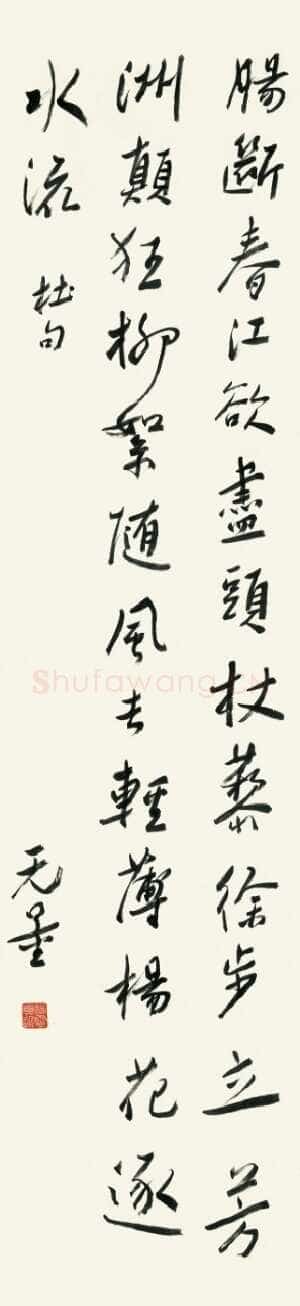 腸斷春江欲盡頭杖藜徐步立芳
洲顛狂柳絮随風去輕薄楊花逐
水流 杜句
无量
Shufawang.CN